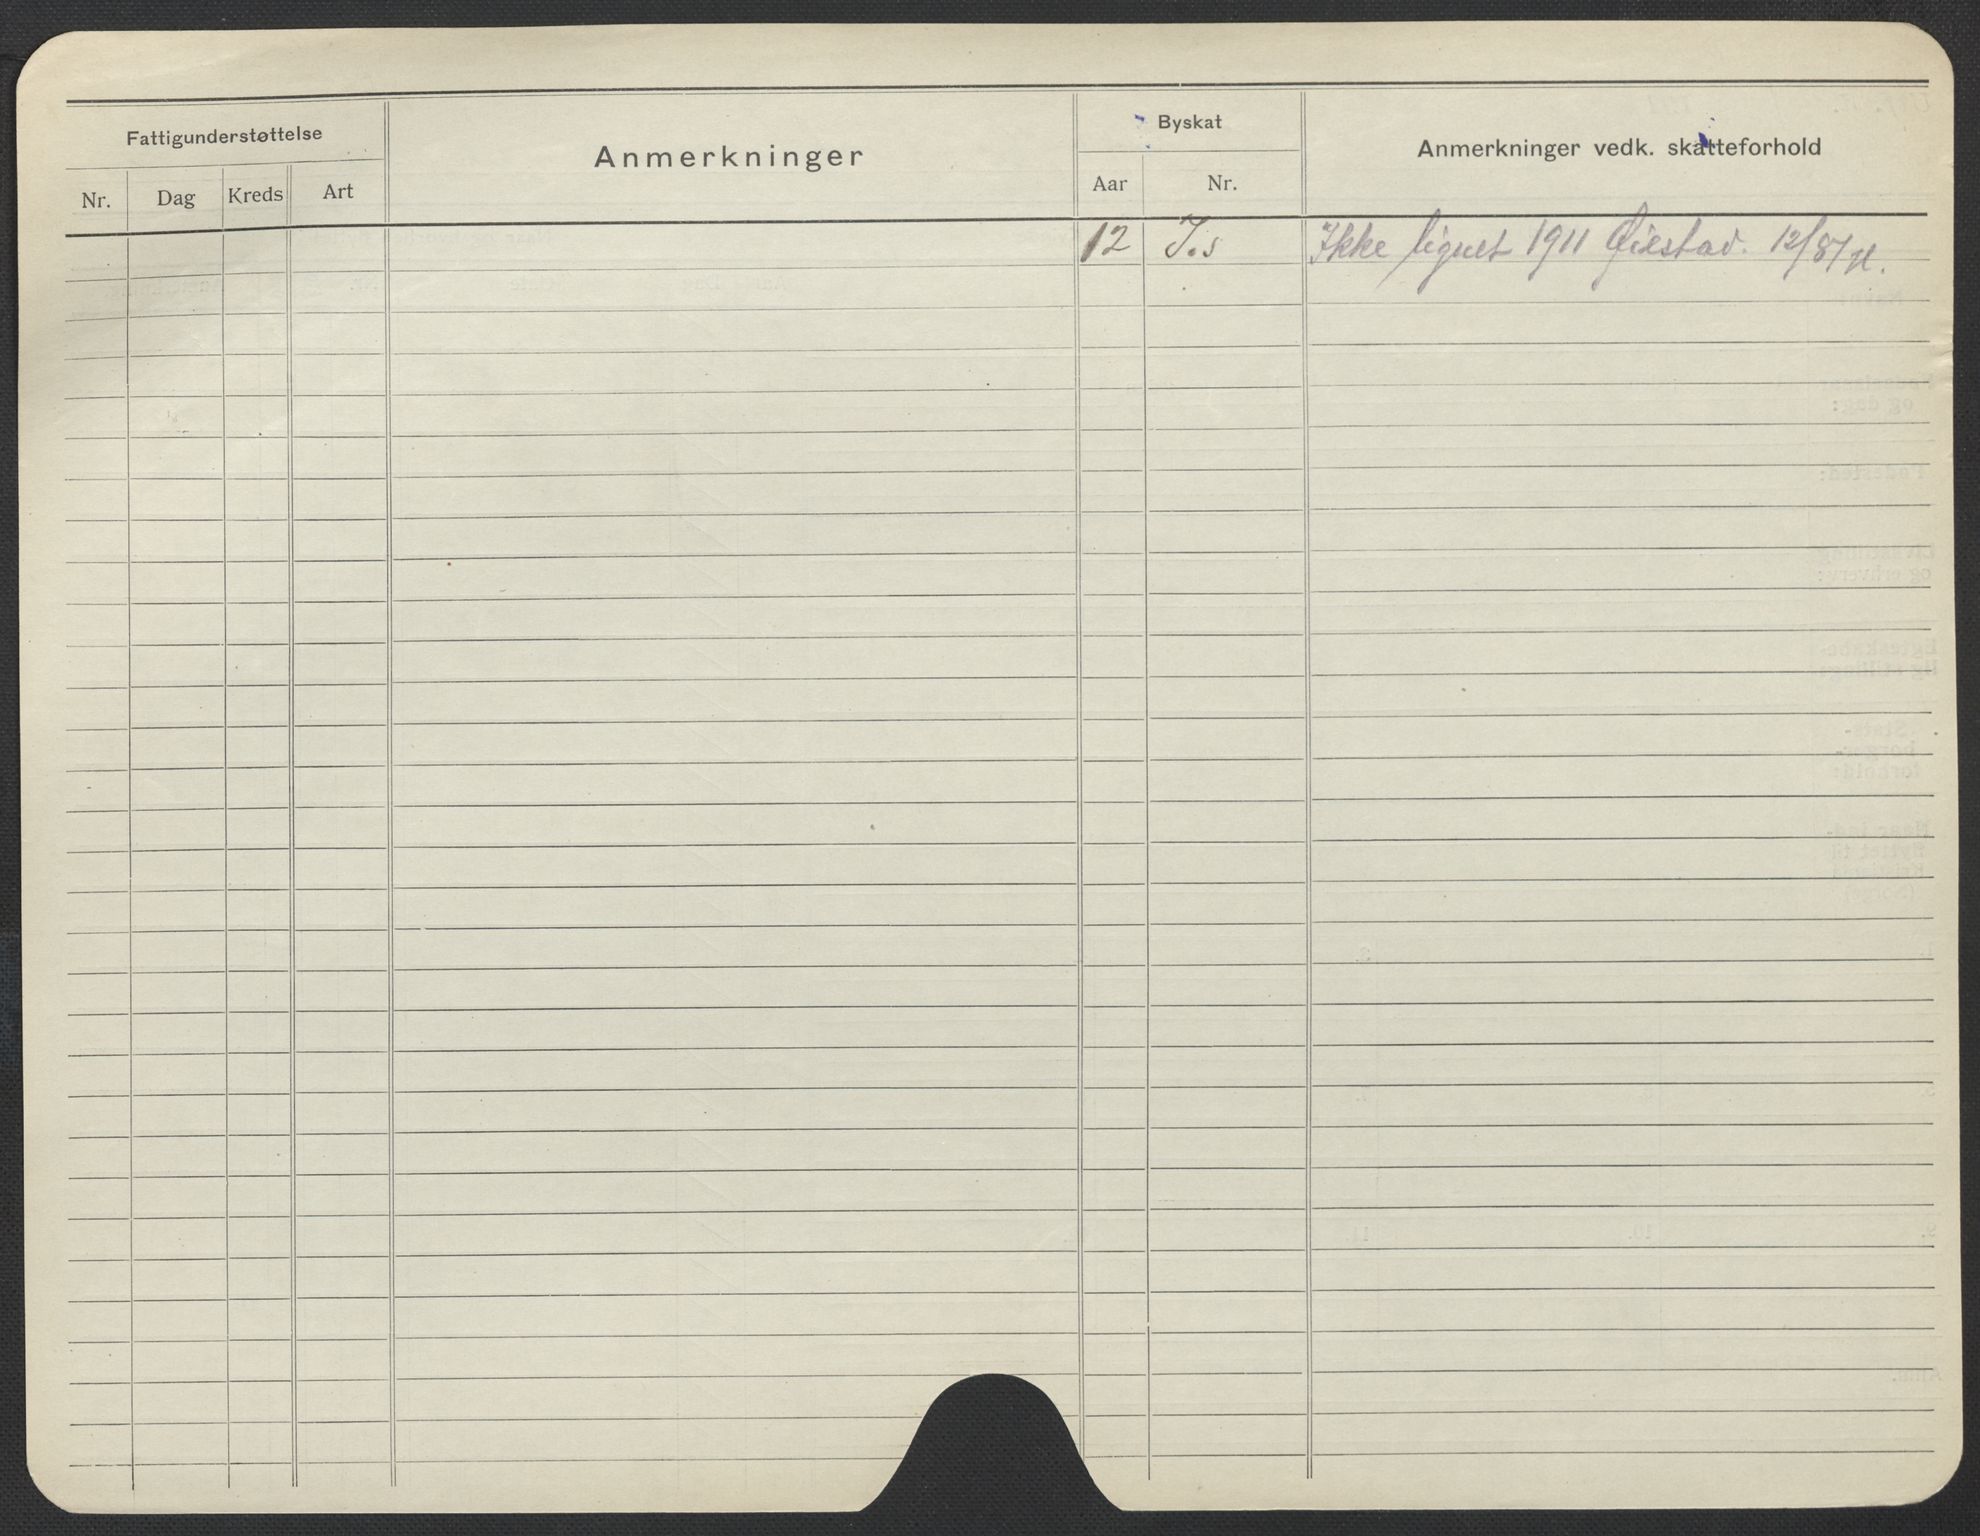 Fattigunderstøttelse
Anmerkninger
Byskat
Anmerkninger vedk. skatteforhold
Nr. Dag Kreds Art
Aar Nr.
12 I.s Ikke lignet 1911 Øiestad. 12/8/11.